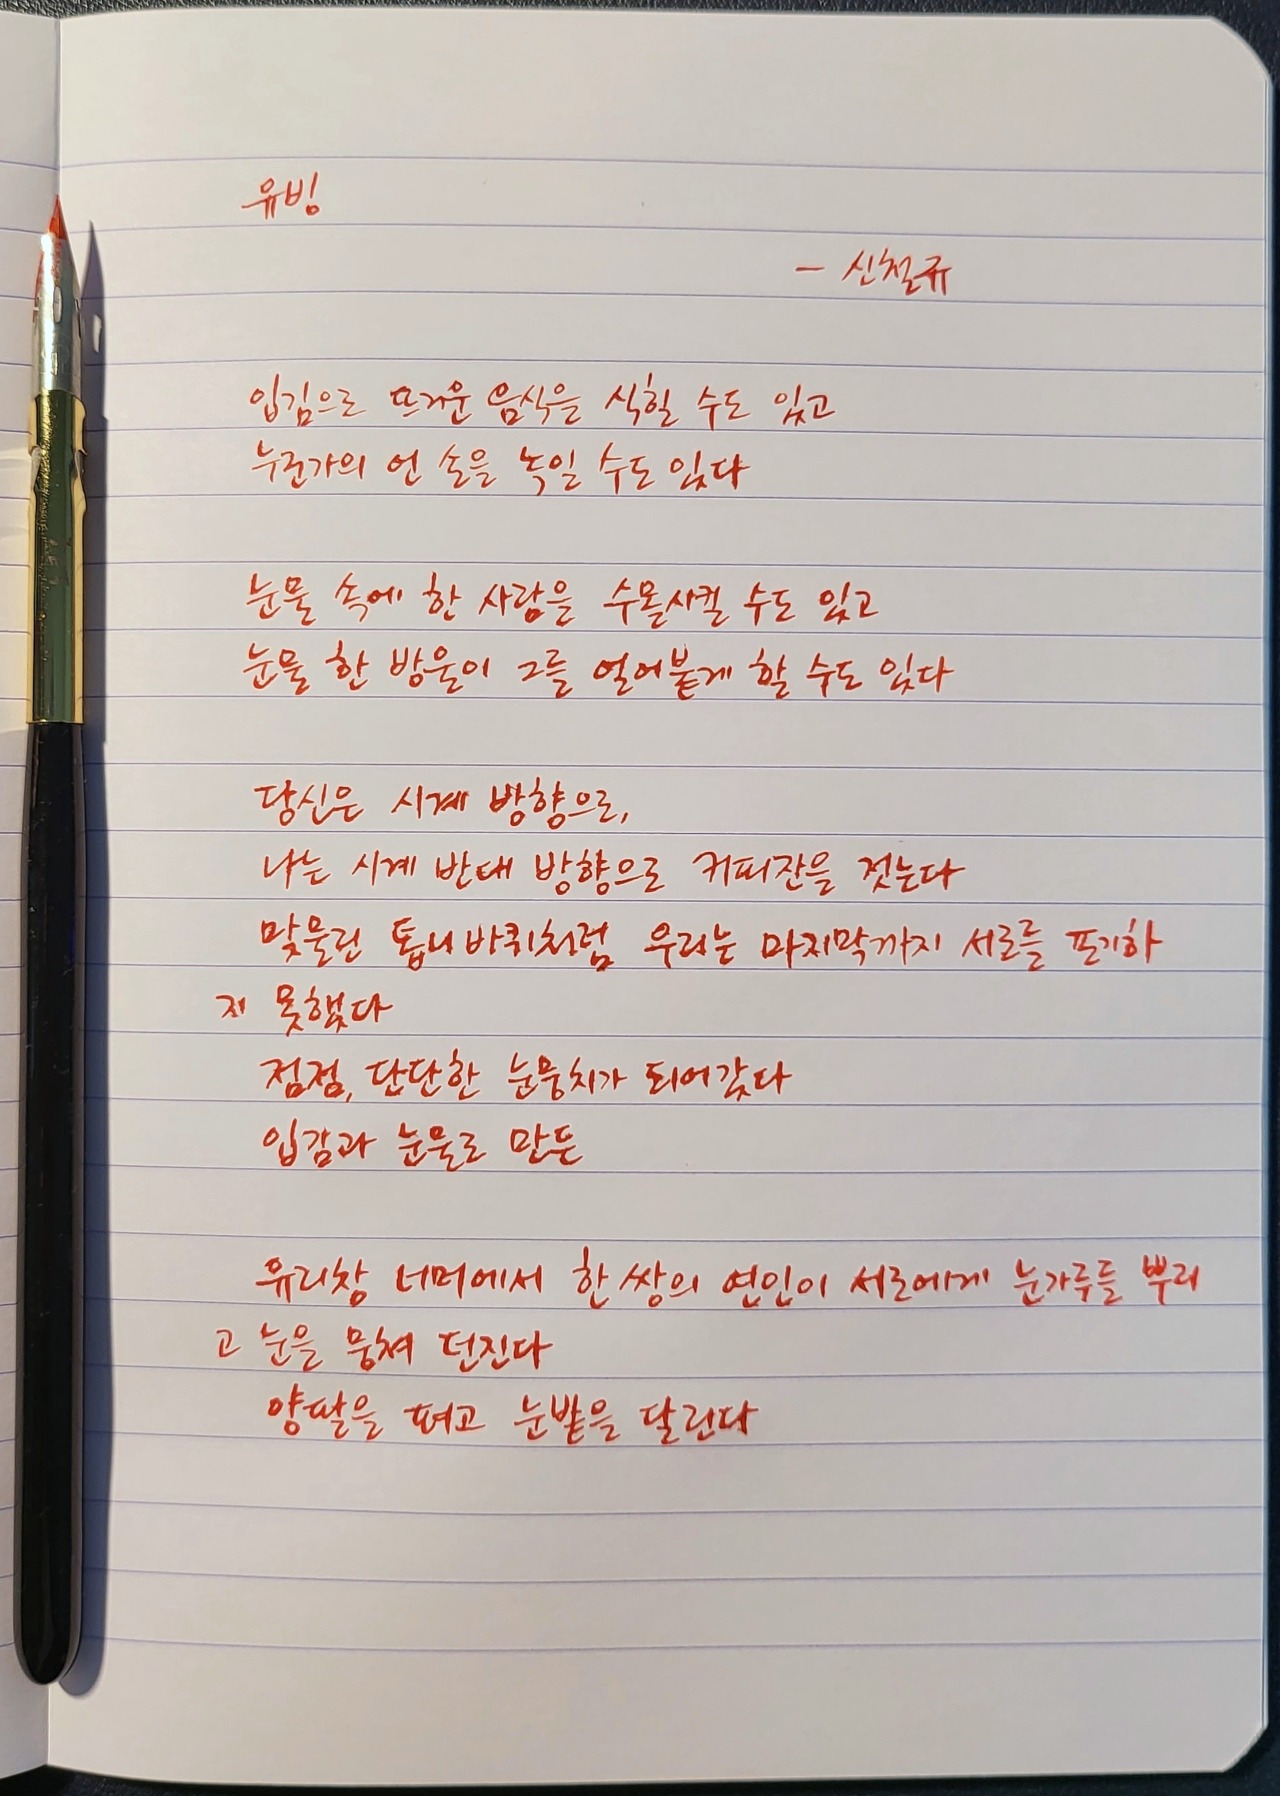 유빙
- 신철규
입김으로 뜨거운 음식을 식힐 수도 있고
누군가의 언 손을 녹일 수도 있다
눈물 속에 한 사람을 수몰시킬 수도 있고
눈물 한 방울이 그를 얼어붙게 할 수도 있다
당신은 시계 방향으로,
나는 시계 반대 방향으로 커피잔을 젓는다
맞물린 톱니바퀴처럼 우리는 마지막까지 서로를 포기하
지 못했다
점점, 단단한 눈뭉치가 되어갔다
입김과 눈물로 만든
유리창 너머에서 한 쌍의 연인이 서로에게 눈가루를 뿌리
고 눈을 뭉쳐 던진다
양팔을 펴고 눈밭을 달린다